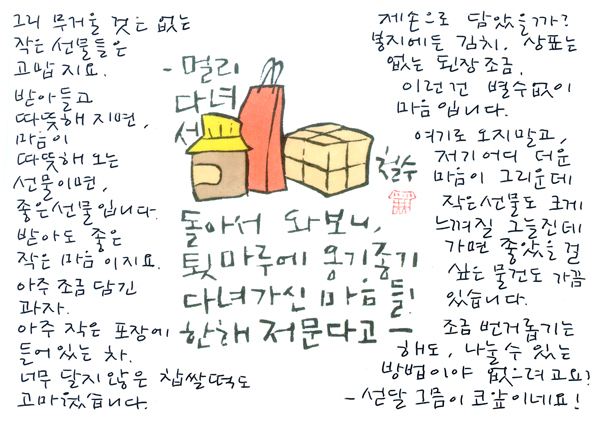 그리 무거울 것은 없는
작은 선물들은
고맙지요.
받아들고
따뜻해지면,
마음이
따뜻해 오는
선물이면,
좋은 선물입니다.
받아도 좋은
작은 마음이지요.
아주 조금 담긴
과자.
아주 작은 포장에
들어 있는 차.
너무 달지 않은 찹쌀떡도
고마웠습니다.
- 멀리
다녀
돌아서 와보니,
툇마루에 옹기종기
다녀가신 마음들!
한해 저문다고 -
철수
제손으로 담았을까?
봉지에 든 김치, 상표는
없는 된장 조금.
이런 건 별수없이
마음입니다.
여기로 오지말고,
저기 어디 더운
마음이 그리운데
작은 선물도 크게
느껴질 그늘진데
가면 좋았을 걸
싶은 물건도 가끔
있습니다.
조금 번거롭기는
해도, 나눌 수 있는
방법이야 없으려고요?
- 섣달 그믐이 코앞이네요!